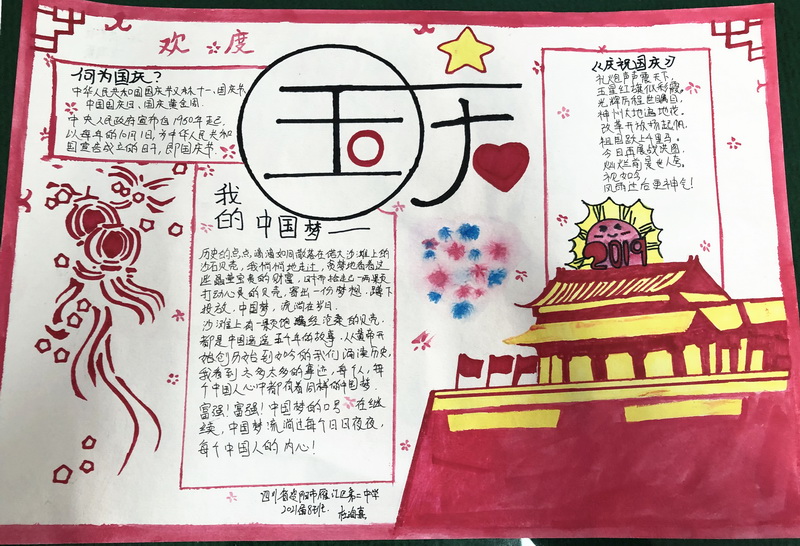 欢度
国庆
何为国庆?
中华人民共和国国庆节又称十一、国庆节、
中国国庆日、国庆黄金周。
中央人民政府宣布自1950年起,
以每年的10月1日,为中华人民共和
国宣告成立的日子,即国庆节.
我的中国梦——
历史的点点滴滴如同散落在偌大沙滩上的
沙石贝壳,我俯
打动心灵的贝壳,寄出一份梦想,
投放,中国梦,流淌在岁月.
沙滩上有一颗饱经沧桑的贝壳.
都是中国遥遥五千年的故事.从黄帝开
始创历始到如今的我们海漠历史,
我看到太多太多的事迹,每个人,每
个中国人心中都有着同样的中国梦
富强!富强!中国梦的口号在继
续,中国梦流淌过每个日日夜夜,
每个中国人的内心!
《庆祝国庆》
礼炮声声震天下,
五星红旗似彩霞,
光辉历程世瞩目,
神州大地遍地花.
改革开放扬起帆,
祖国跃上千里马,
今日再展战洪图,
灿烂前景
祝如今
风雨过后更神气!
2019
四川省资阳市雁江区第二中学
2021届8班